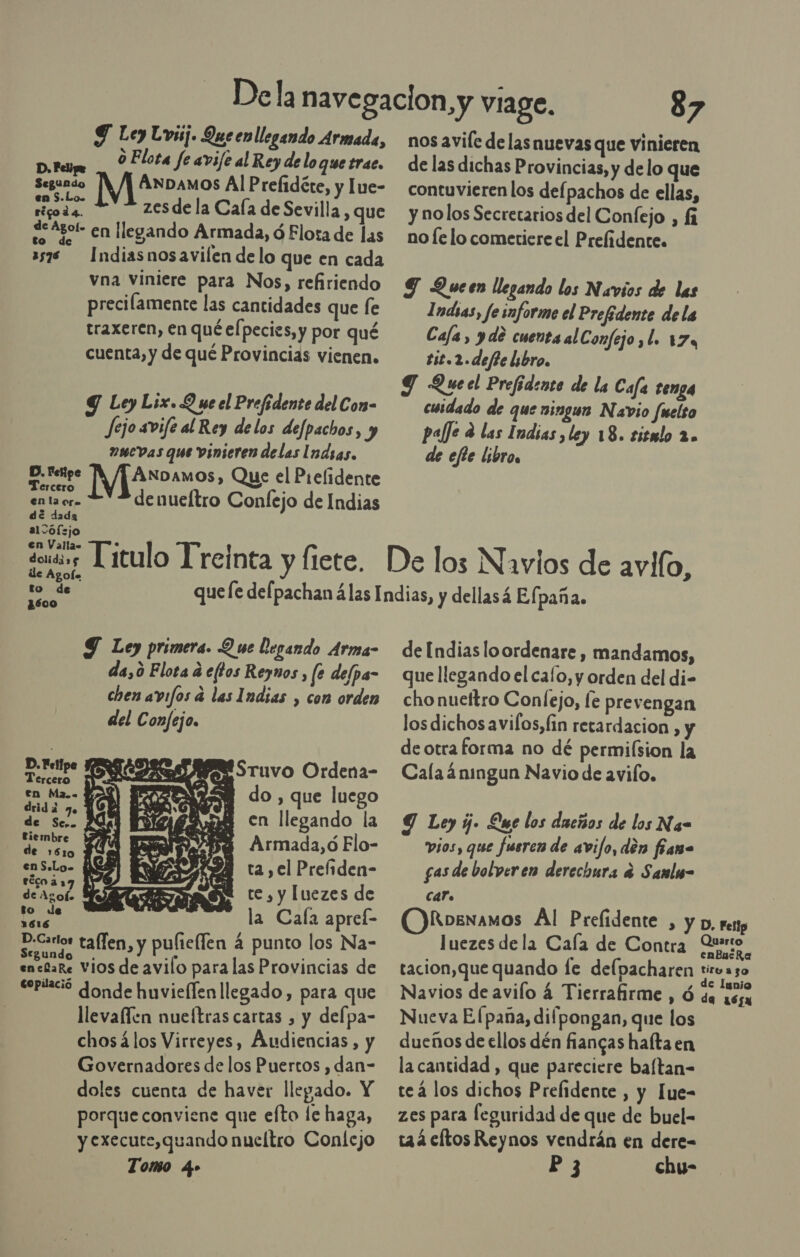 De la navegacion, y viage. 87
¶ Ley Lviij. Que en llegando Armada,
ò Flota se avise al Rey de lo que trae.
D. Felipe
Segundo
en S. Lo-
rēço à 4.
de Agos-
to de
1576
MAndamos Al Presidēte, y Iue-
zes de la Casa de Sevilla, que
en llegando Armada, ó Flota de las
Indias nos avisen de lo que en cada
vna viniere para Nos, refiriendo
precisamente las cantidades que se
traxeren, en qué especies, y por qué
cuenta, y de qué Provincias vienen.
¶ Ley Lix. Que el Presidente del Con-
sejo avise al Rey de los despachos, y
nuevas que vinieren de las Indias.
D. Felipe
Tercero
en la or-
dē dada
al Cōsejo
en Valla-
dolid à 5
de Agos-
to de
1600
MAndamos, Que el Presidente
de nuestro Consejo de Indias
nos avise de las nuevas que vinieren
de las dichas Provincias, y de lo que
contuvieren los despachos de ellas,
y no los Secretarios del Consejo, si
no se lo cometiere el Presidente.
¶ Que en llegando los Navios de las
Indias, se informe el Presidente de la
Casa, y dè cuenta al Consejo, l. 17.
tit. 2. deste libro.
¶ Que el Presidente de la Casa tenga
cuidado de que ningun Navio suelto
passe à las Indias, ley 18. titulo 2.
de este libro.
Titulo Treinta y siete. De los Navios de aviso,
que se despachan á las Indias, y dellas á España.
¶ Ley primera. Que llegando Arma-
da, ò Flota à estos Reynos, se despa-
chen avisos à las Indias, con orden
del Consejo.
D. Felipe
Tercero
en Ma-
drid à 7.
de Se-
tiembre
de 1610
en S. Lo-
rēço à 17
de Agos-
to de
1616
D. Carlos
Segundo
en esta Re
copilació
Stuvo Ordena-
do, que luego
en llegando la
Armada, ó Flo-
ta, el Presiden-
te, y Iuezes de
la Casa apres-
tassen, y pusiessen á punto los Na-
vios de aviso para las Provincias de
donde huviessen llegado, para que
llevassen nuestras cartas, y despa-
chos á los Virreyes, Audiencias, y
Governadores de los Puertos, dan-
doles cuenta de haver llegado. Y
porque conviene que esto se haga,
y execute, quando nuestro Consejo
de Indias lo ordenare, mandamos,
que llegando el caso, y orden del di-
cho nuestro Consejo, se prevengan
los dichos avisos, sin retardacion, y
de otra forma no dé permission la
Casa á ningun Navio de aviso.
¶ Ley ij. Que los dueños de los Na-
vios, que fueren de aviso, dèn fian-
ças de bolver en derechura à Sanlu-
car.
ORdenamos Al Presidente, y
Iuezes de la Casa de Contra
tacion, que quando se despacharen
Navios de aviso á Tierrafirme, ó
Nueva España, dispongan, que los
dueños de ellos dén fianças hasta en
la cantidad, que pareciere bastan-
te á los dichos Presidente, y Iue-
zes para seguridad de que de buel-
ta á estos Reynos vendrán en dere-
D. Felip
Quarto
en Buē Re
tiro a 30
de Iunio
de 1651
Tomo 4.
P 3
chu-